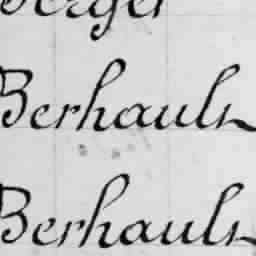 Berger
Berhault
Berhault